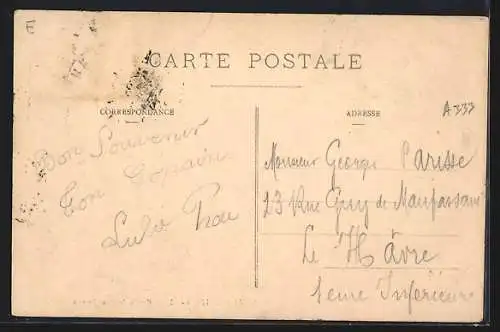 CARTE POSTALE
CORRESPONDANCE
ADRESSE
A333
Bon Souvenir
Ton Copain
Monsieur George Parisse
23 Rue Guy de Maupassant
Le Hâvre
Seine Inférieure